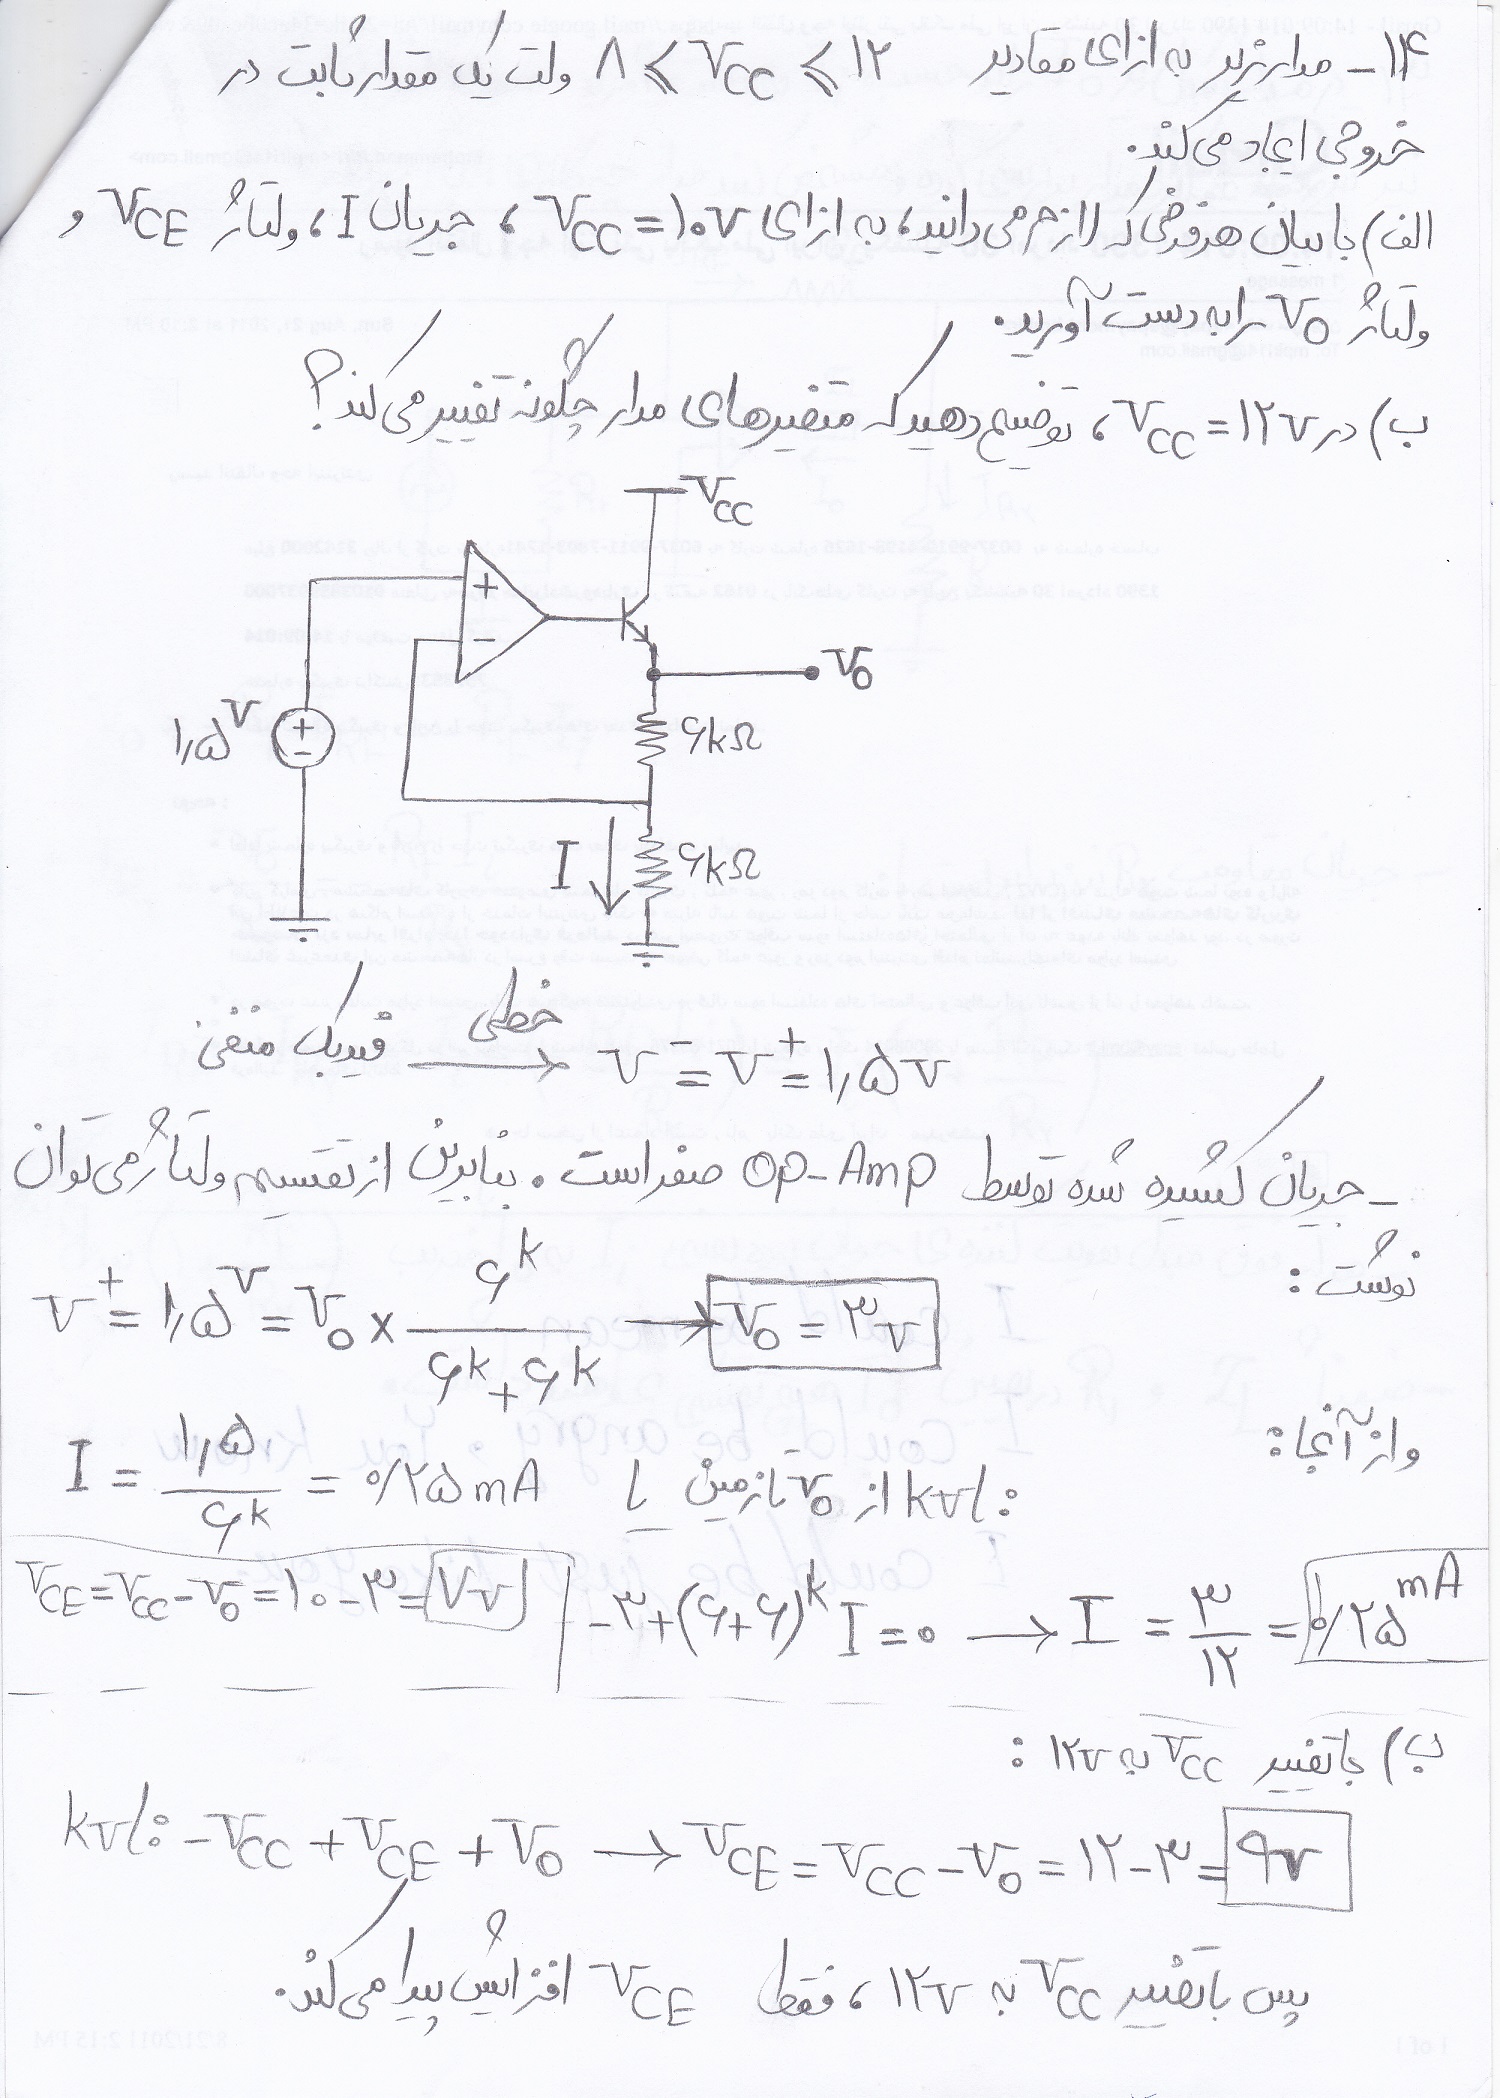 ۱۴- مدار زیر به ازای مقادیر ۸ ⩽ VCC ⩽ ۱۲ ولت یک مقدار ثابت در
خروجی ایجاد می‌کند.
الف) با بیان هر فرضی که لازم می‌دانید، به ازای VCC = ۱۰V، جریان I، ولتاژ VCE و
ولتاژ VO را به دست آورید.
ب) در VCC = ۱۲V، توضیح دهید که متغیرهای مدار چگونه تغییر می‌کند؟
VCC
+
-
VO
۱٫۵V
+
-
۶kΩ
I
۶kΩ
فیدبک منفی خطی → V⁻ = V⁺ = ۱٫۵V
- جریان کشیده شده توسط Op-Amp صفر است. بنابراین از تقسیم ولتاژ می‌توان
نوشت:
V⁺ = ۱٫۵V = VO × ۶k / (۶k + ۶k) → VO = ۳V
و از آنجا:
I = ۱٫۵ / ۶k = ۰/۲۵mA یا kvl از VO تا زمین:
-۳ + (۶+۶)k I = ۰ → I = ۳ / ۱۲ = ۰/۲۵mA
VCE = VCC - VO = ۱۰ - ۳ = ۷V
ب) با تغییر VCC به ۱۲V:
kvl: -VCC + VCE + VO → VCE = VCC - VO = ۱۲ - ۳ = ۹V
پس با تغییر VCC به ۱۲V، فقط VCE افزایش پیدا می‌کند.